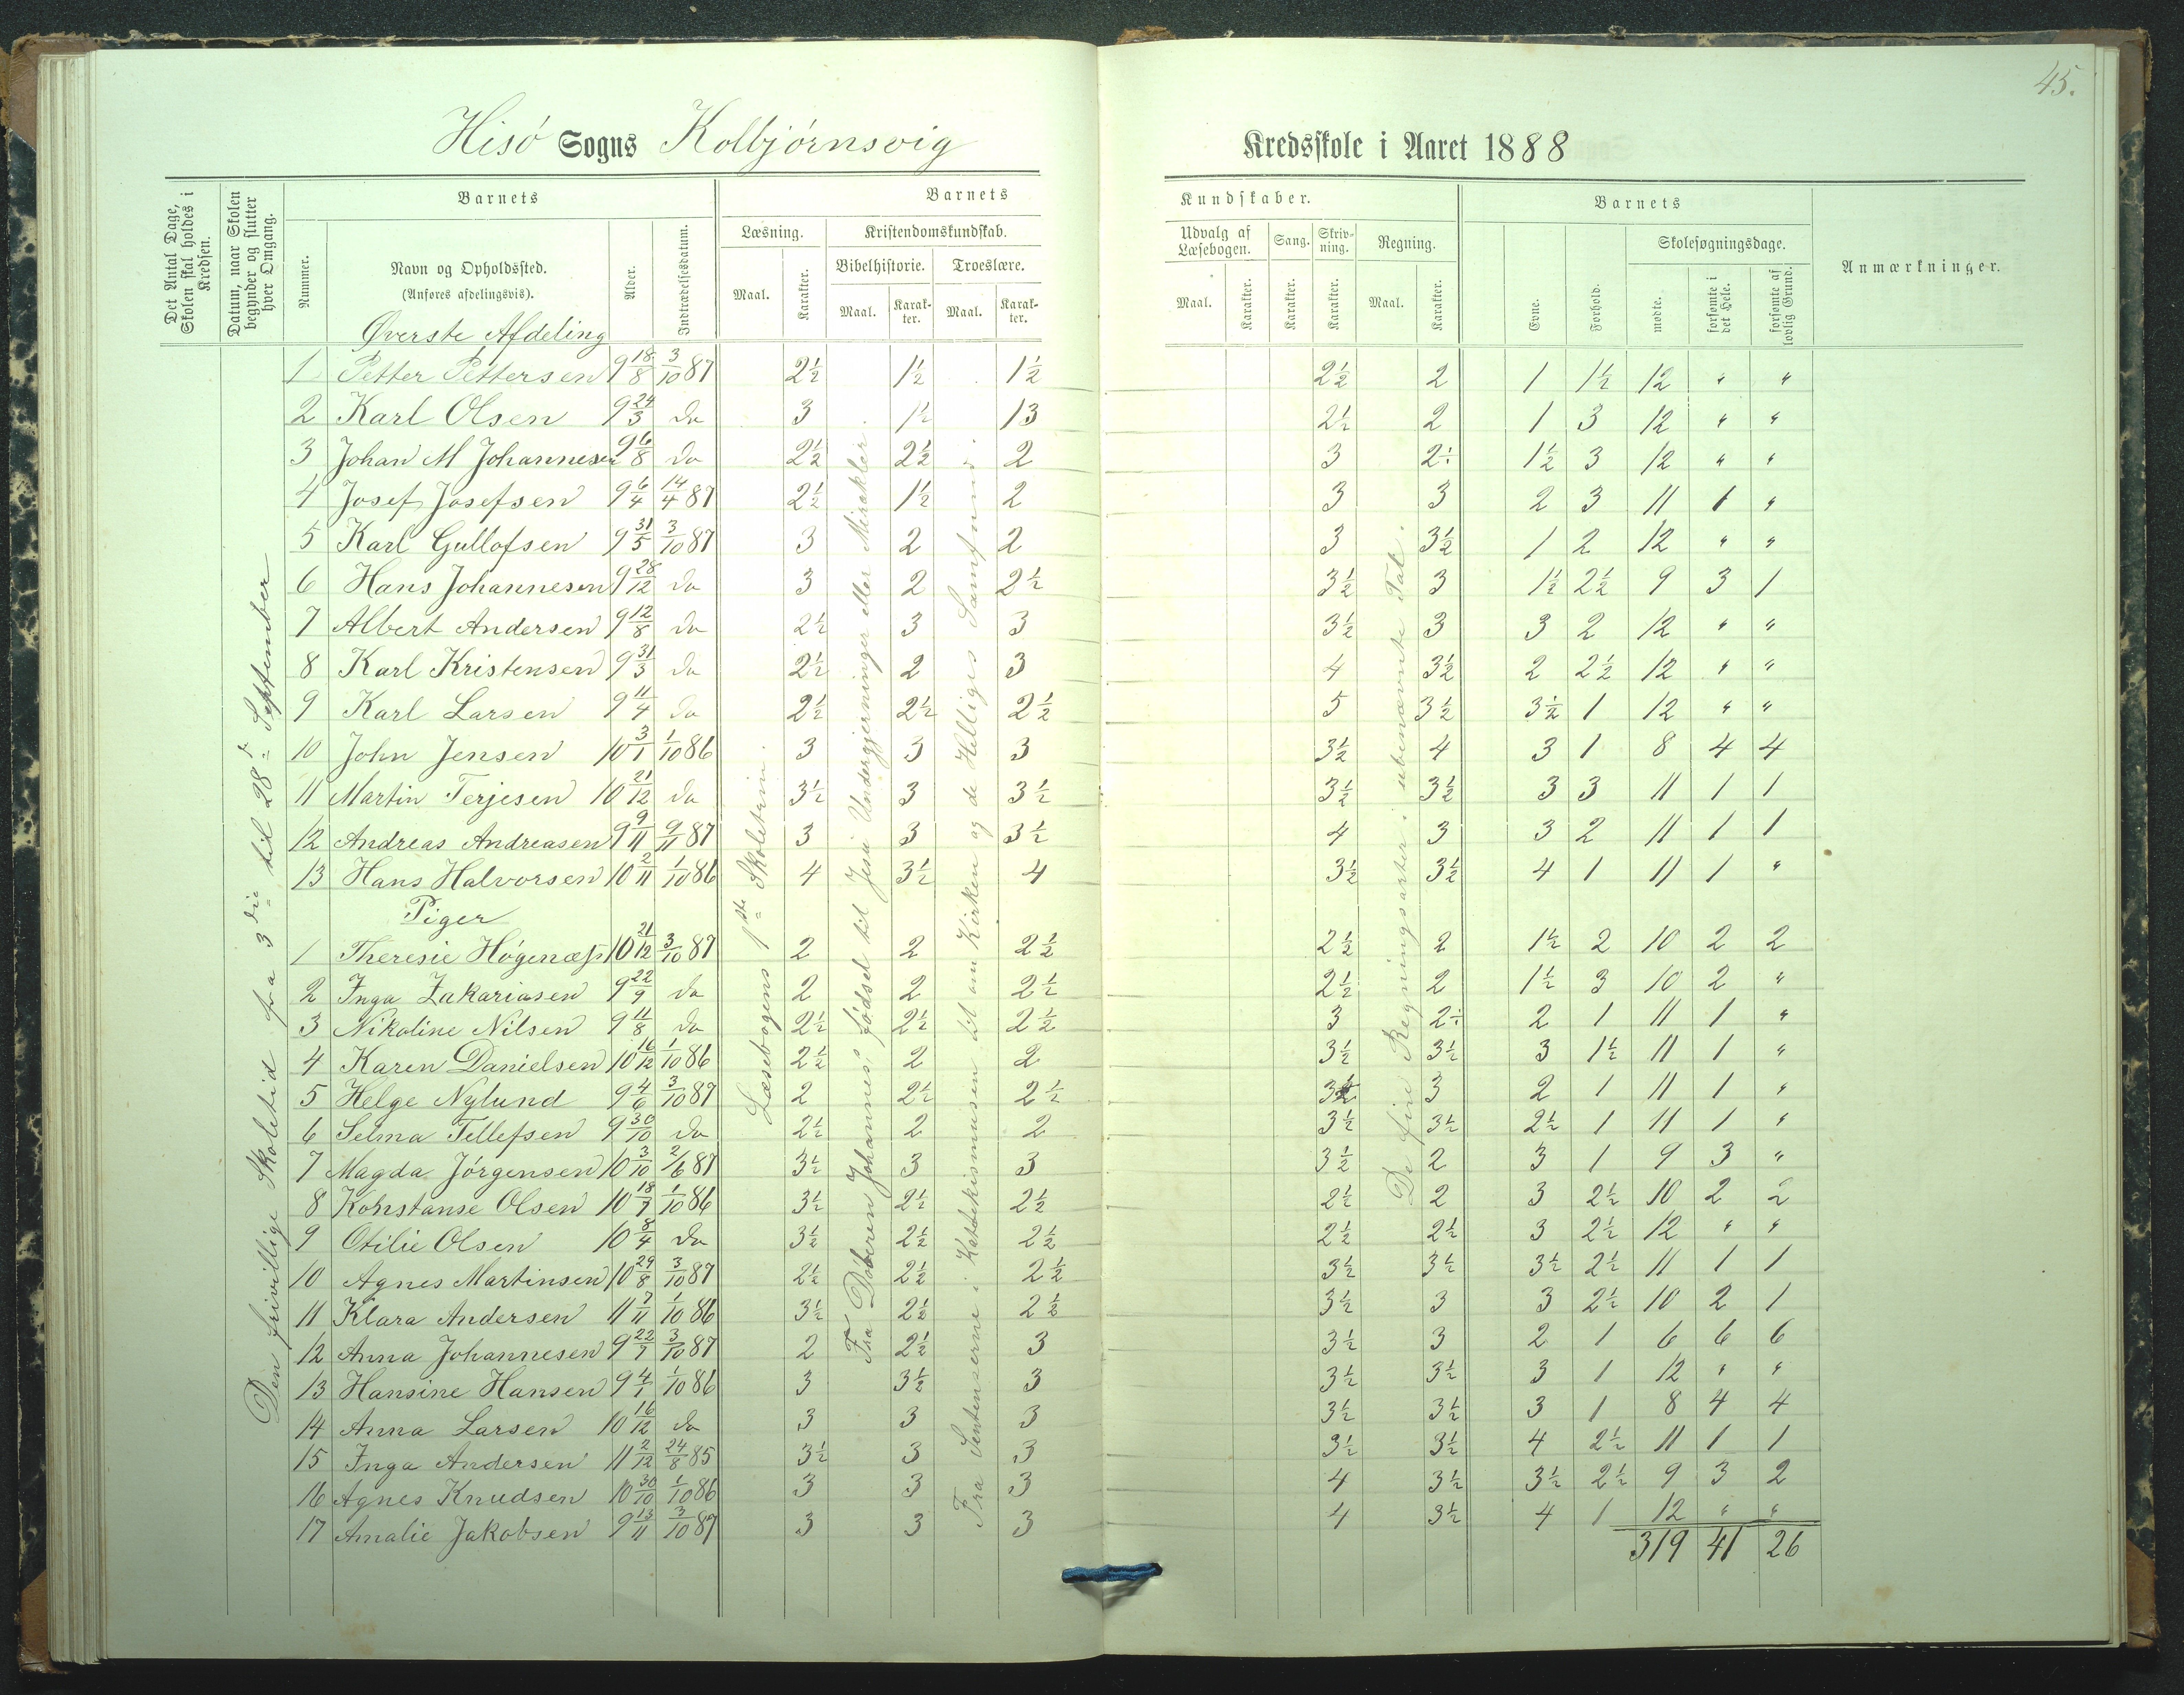 45.
Hisó Sogns Kolbjórnsvig Kredsskole i Aaret 1888
Det Antal Dage, Skolen skal holdes i Kredsen.
Datum, naar Skolen begynder og slutter hver Omgang.
Barnets
Nummer.
Navn og Opholdssted.
(Anføres afdelingsvis).
Alder.
Indtrædelsesdatum.
Barnets Kundskaber.
Læsning.
Maal. Karakter.
Kristendomskundskab.
Bibelhistorie. Troeslære.
Maal. Karakter. Maal. Karakter.
Udvalg af Læsebogen. Sang. Skrivning. Regning.
Maal. Karakter. Karakter. Karakter. Maal. Karakter.
Barnets
Evne. Forhold.
Skolesøgningsdage.
mødte. forsømte i det Hele. forsømte af lovlig Grund.
Anmærkninger.
Øverste Afdeling
1 Petter Pettersen 9 18/8 3/10 87 2½ 1½ 1½ 2½ 2 1 1½ 12 " "
2 Karl Olsen 9 24/3 do 3 1½ 13 2½ 2 1 3 12 " "
3 Johan M Johannesen 9 6/8 do 2½ 2½ 2 3 2÷ 1½ 3 12 " "
4 Josef Josefsen 9 6/4 14/4 87 2½ 1½ 2 3 3 2 3 11 1 "
5 Karl Gullofsen 9 31/5 3/10 87 3 2 2 3 3½ 1 2 12 " "
6 Hans Johannesen 9 28/12 do 3 2 2½ 3½ 3 1½ 2½ 9 3 1
7 Albert Andersen 9 12/8 do 2½ 3 3 3½ 3 3 2 12 " "
8 Karl Kristensen 9 31/3 do 2½ 2 3 4 3½ 2 2½ 12 " "
9 Karl Larsen 9 11/4 do 2½ 2½ 2½ 5 3½ 3½ 1 12 " "
10 John Jensen 10 3/1 1/10 86 3 3 3 3½ 4 3 1 8 4 4
11 Martin Terjesen 10 21/12 do 3½ 3 3½ 3½ 3½ 3 3 11 1 1
12 Andreas Andreasen 9 9/11 9/11 87 3 3 3½ 4 3 3 2 11 1 1
13 Hans Halvorsen 10 2/11 1/10 86 4 3½ 4 3½ 3½ 4 1 11 1 "
Piger
1 Theresie Hógenæss 10 21/12 3/10 87 2 2 2½ 2½ 2 1½ 2 10 2 2
2 Inga Zakariasen 9 22/9 do 2 2 2½ 2½ 2 1½ 3 10 2 "
3 Nikoline Nilsen 9 11/8 do 2½ 2½ 2½ 3 2÷ 2 1 11 1 "
4 Karen Danielsen 10 16/12 1/10 86 2½ 2 2 3½ 3½ 3 1½ 11 1 "
5 Helge Nylund 9 4/6 3/10 87 2 2½ 2½ 3½ 3 2 1 11 1 "
6 Selma Tellefsen 9 30/10 do 2½ 2 2 3½ 3½ 2½ 1 11 1 "
7 Magda Jórgensen 10 3/10 2/6 87 3½ 3 3 3½ 2 3 1 9 3 "
8 Konstanse Olsen 10 18/7 1/10 86 3½ 2½ 2½ 2½ 2 3 2½ 10 2 2
9 Otilie Olsen 10 8/4 do 3½ 2½ 2½ 2½ 2½ 3 2½ 12 " "
10 Agnes Martinsen 10 29/8 3/10 87 2½ 2½ 2½ 3½ 3½ 3½ 2½ 11 1 1
11 Klara Andersen 11 7/11 1/10 86 3½ 2½ 2½ 3½ 3 3 2½ 10 2 1
12 Anna Johannesen 9 22/7 3/10 87 2 2½ 3 3½ 3 2 1 6 6 6
13 Hansine Hansen 9 4/1 1/10 86 3 3½ 3 3½ 3½ 3 1 12 " "
14 Anna Larsen 10 16/12 do 3 3 3 3½ 3½ 3 1 8 4 4
15 Inga Andersen 11 2/12 24/8 85 3½ 3 3 3½ 3½ 4 2½ 11 1 1
16 Agnes Knudsen 10 30/10 1/10 86 3 3 3 4 3½ 3½ 2½ 9 3 2
17 Amalie Jakobsen 9 13/11 3/10 87 3 3 3 4 3½ 4 1 12 " "
319 41 26
Den frivillige Skoletid fra 3die til 28de September
Læsebogens 1ste Skoletrin.
Fra Dóberen Johannes' fódsel til Jesu Undergjerninger eller Mirakler.
Fra Sentenserne i Katekismusen til om Kirken og de Helliges Samfund.
De fire Regningsarter i ubenævnte Tal.